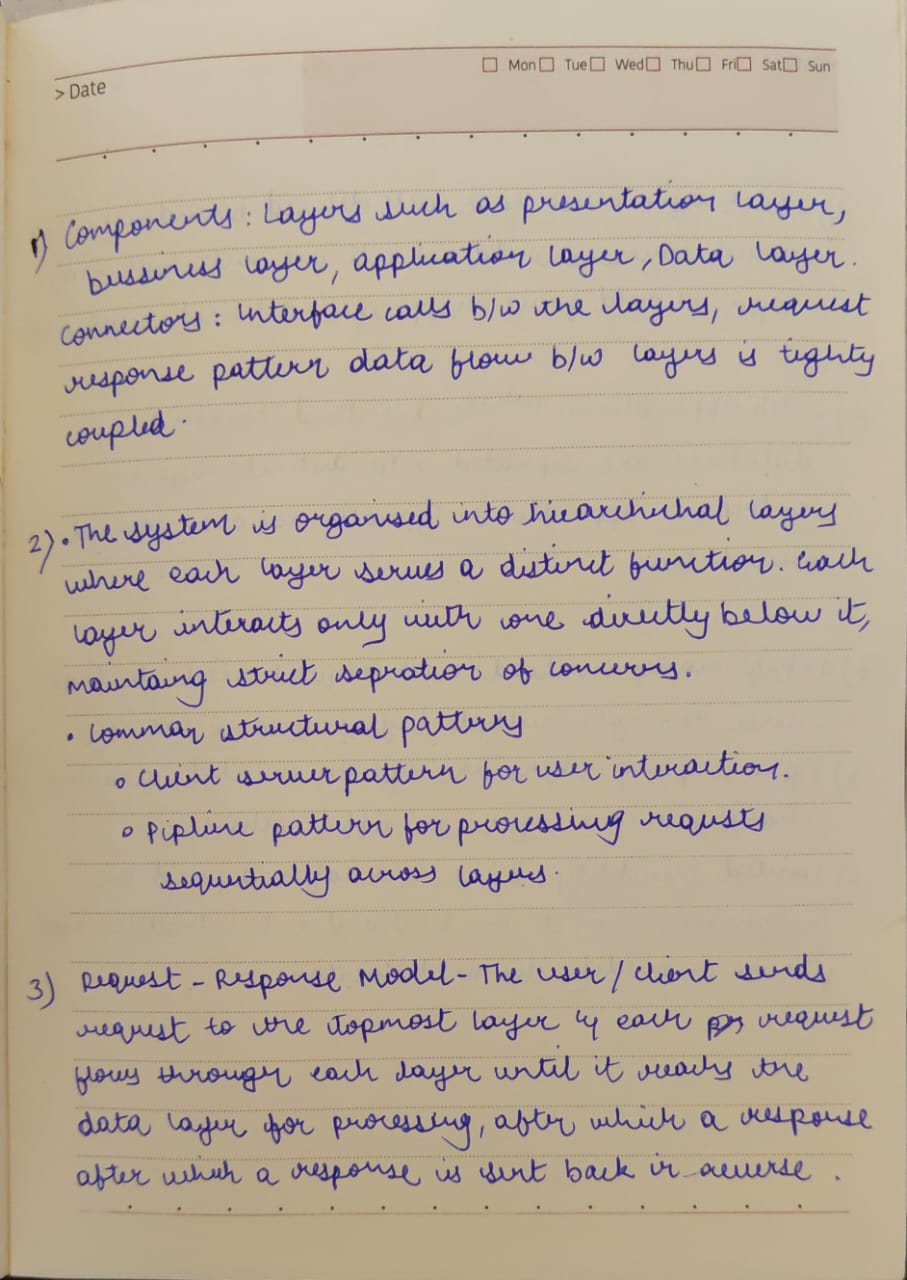 > Date
Mon Tue Wed Thu Fri Sat Sun
1) Components : Layers such as presentation layer,
bussiness layer, application layer, Data layer.
Connectors : Interface calls b/w the layers, request
response pattern data flow b/w layers is tighty
coupled.
2) • The system is organised into hiearchichal layers
where each layer serves a distinct function. Each
layer interacts only with one directly below it,
maintaing strict sepration of concerns.
• Common structural patterns
○ Client server pattern for user interaction.
○ Pipline pattern for processing requsts
sequentially across layers.
3) Request - Response Model - The user / client sends
request to the topmost layer & each request
flows through each layer until it reachs the
data layer for processing, after which a response
after which a response is sent back in reverse .